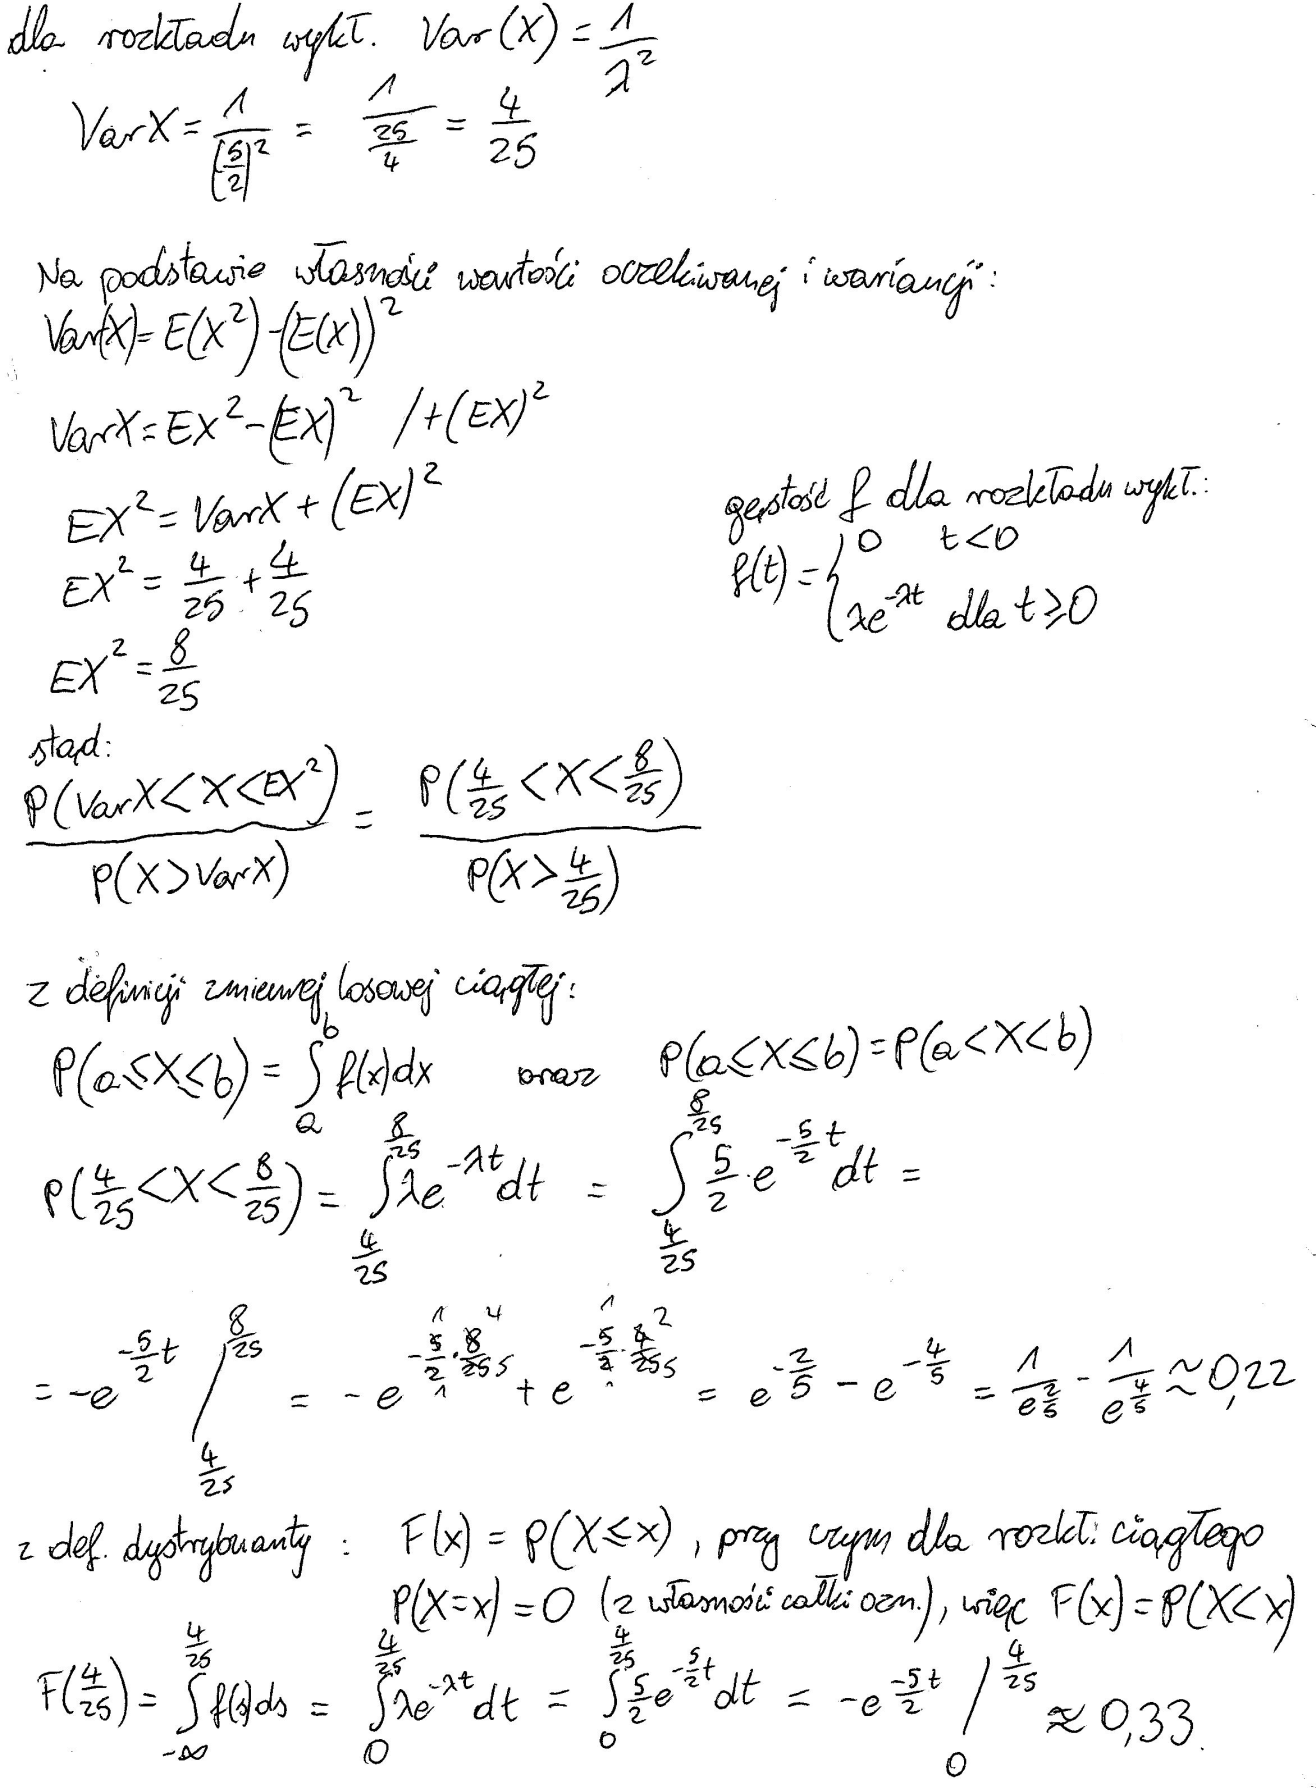 dla rozkładu wykł. Var(X) = 1/λ²
VarX = 1/(5/2)² = 1/(25/4) = 4/25
Na podstawie własności wartości oczekiwanej i wariancji:
Var(X) = E(X²) - (E(X))²
VarX = EX² - (EX)² /+(EX)²
EX² = VarX + (EX)²
EX² = 4/25 + 4/25
EX² = 8/25
gęstość f dla rozkładu wykł.:
f(t) = { 0 t<0
λe^(-λt) dla t ≥ 0
stąd:
P(VarX < X < EX²) / P(X > VarX) = P(4/25 < X < 8/25) / P(X > 4/25)
z definicji zmiennej losowej ciągłej:
P(a ≤ X ≤ b) = ∫_a^b f(x)dx oraz P(a ≤ X ≤ b) = P(a < X < b)
P(4/25 < X < 8/25) = ∫_(4/25)^(8/25) λe^(-λt) dt = ∫_(4/25)^(8/25) 5/2 · e^(-5/2 t) dt =
= -e^(-5/2 t) /_(4/25)^(8/25) = -e^(-5/2 · 8/25) + e^(-5/2 · 4/25) = e^(-2/5) - e^(-4/5) = 1/e^(2/5) - 1/e^(4/5) ≈ 0,22
z def. dystrybuanty : F(x) = P(X ≤ x), przy czym dla rozkł. ciągłego
P(X = x) = 0 (z własności całki ozn.), więc F(x) = P(X < x)
F(4/25) = ∫_(-∞)^(4/25) f(s)ds = ∫_0^(4/25) λe^(-λt) dt = ∫_0^(4/25) 5/2 e^(-5/2 t) dt = -e^(-5/2 t) /_0^(4/25) ≈ 0,33.